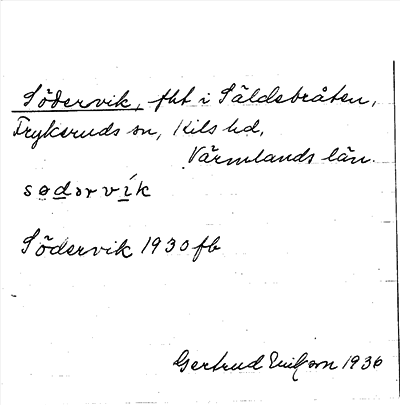 Södervik, fht i Säldebråten,
Frykeruds sn, Kils hd,
Värmlands län.
sødər vík
Södervik 1930 fb
Gertrud 1936